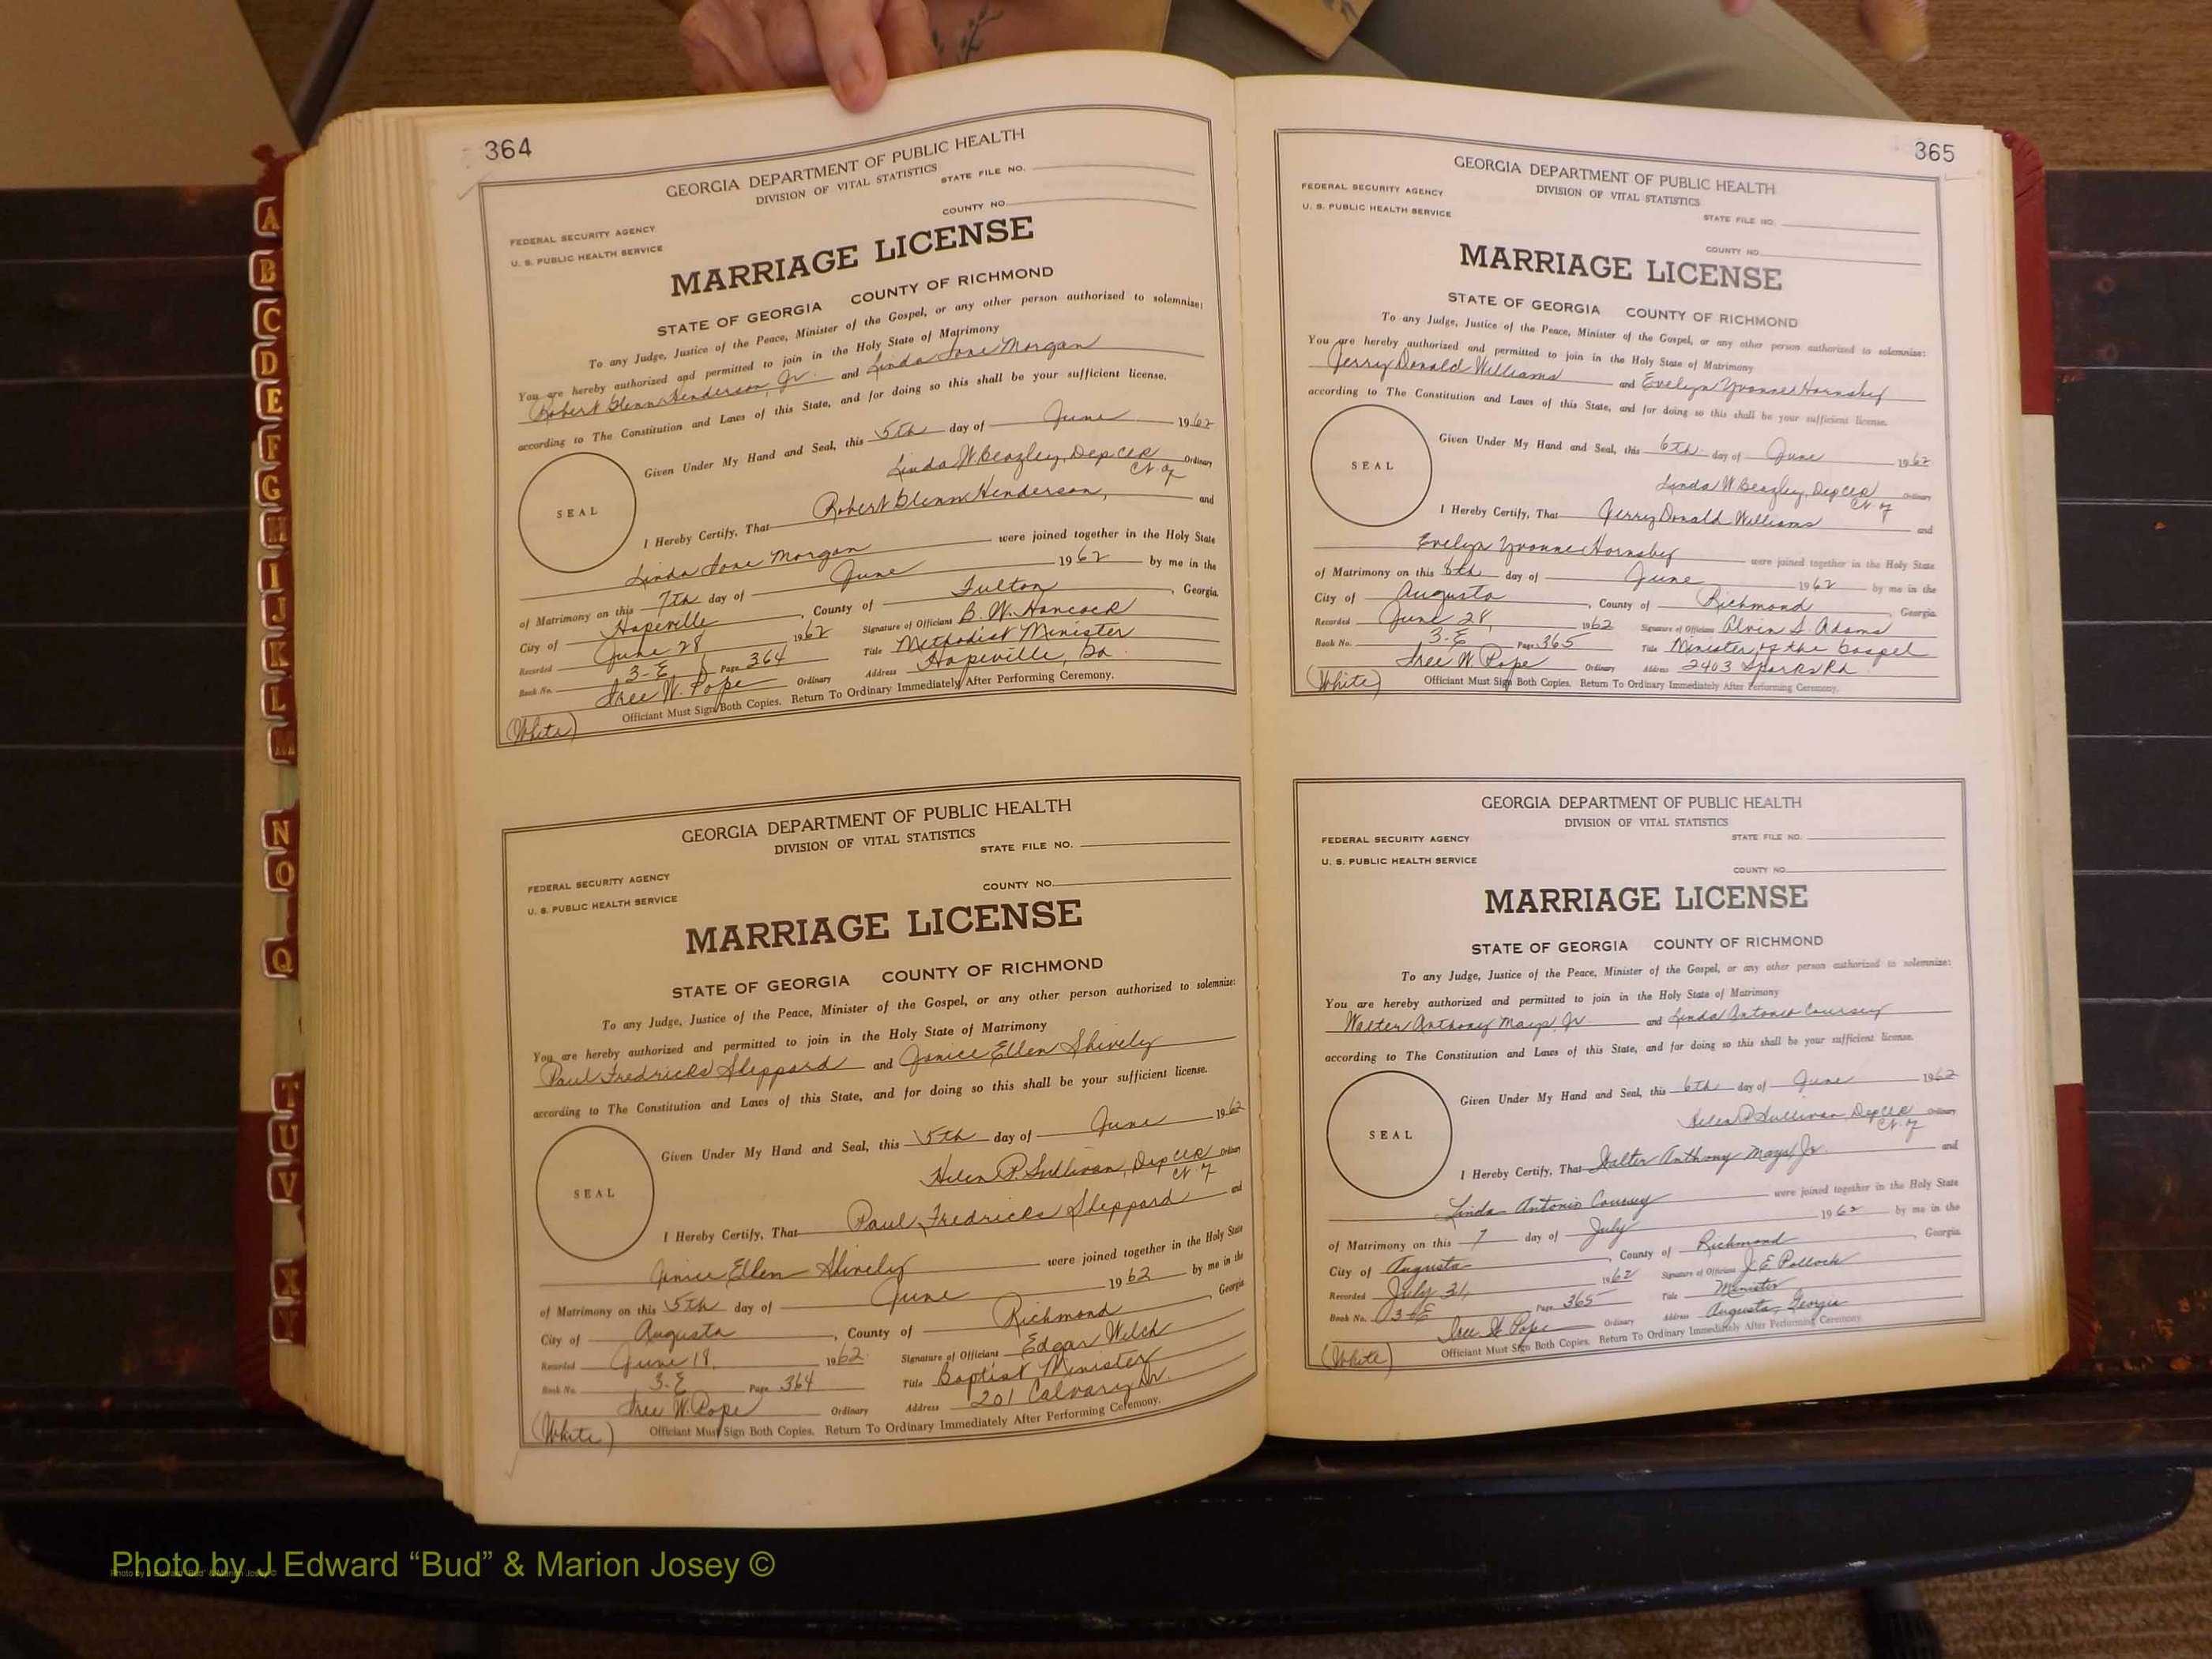 364
GEORGIA DEPARTMENT OF PUBLIC HEALTH
DIVISION OF VITAL STATISTICS
STATE FILE NO.
COUNTY NO.
FEDERAL SECURITY AGENCY
U. S. PUBLIC HEALTH SERVICE
MARRIAGE LICENSE
STATE OF GEORGIA COUNTY OF RICHMOND
To any Judge, Justice of the Peace, Minister of the Gospel, or any other person authorized to solemnize:
You are hereby authorized and permitted to join in the Holy State of Matrimony
Robert Glenn Henderson, Jr. and Linda Jane Morgan
according to The Constitution and Laws of this State, and for doing so this shall be your sufficient license.
Given Under My Hand and Seal, this 5th day of June 1962
Linda W. Beazley, Dep Clk Ordinary
Ct. of
SEAL
I Hereby Certify, That Robert Glenn Henderson, and
Linda Jane Morgan were joined together in the Holy State
of Matrimony on this 7th day of June 1962 by me in the
City of Hapeville, County of Fulton, Georgia.
Recorded June 28 1962 Signature of Officiant B. W. Hancock
Book No. 3-E Page 364 Title Methodist Minister
Tree W. Pope Ordinary Address Hapeville, Ga.
(White) Officiant Must Sign Both Copies. Return To Ordinary Immediately After Performing Ceremony.
GEORGIA DEPARTMENT OF PUBLIC HEALTH
DIVISION OF VITAL STATISTICS
STATE FILE NO.
FEDERAL SECURITY AGENCY
COUNTY NO.
U. S. PUBLIC HEALTH SERVICE
MARRIAGE LICENSE
STATE OF GEORGIA COUNTY OF RICHMOND
To any Judge, Justice of the Peace, Minister of the Gospel, or any other person authorized to solemnize:
You are hereby authorized and permitted to join in the Holy State of Matrimony
Paul Fredricks Sheppard and Janice Ellen Shively
according to The Constitution and Laws of this State, and for doing so this shall be your sufficient license.
Given Under My Hand and Seal, this 5th day of June 1962
Helen P. Sullivan, Dep Clk Ordinary
Ct. of
SEAL
I Hereby Certify, That Paul Fredricks Sheppard and
Janice Ellen Shively were joined together in the Holy State
of Matrimony on this 5th day of June 1962 by me in the
City of Augusta, County of Richmond Georgia.
Recorded June 18, 1962 Signature of Officiant Edgar Welch
Book No. 3-E Page 364 Title Baptist Minister
Tree W. Pope Ordinary Address 201 Calvary Dr.
(White) Officiant Must Sign Both Copies. Return To Ordinary Immediately After Performing Ceremony.
365
GEORGIA DEPARTMENT OF PUBLIC HEALTH
FEDERAL SECURITY AGENCY
DIVISION OF VITAL STATISTICS
U. S. PUBLIC HEALTH SERVICE
STATE FILE NO.
COUNTY NO.
MARRIAGE LICENSE
STATE OF GEORGIA COUNTY OF RICHMOND
To any Judge, Justice of the Peace, Minister of the Gospel, or any other person authorized to solemnize:
You are hereby authorized and permitted to join in the Holy State of Matrimony
Jerry Donald Williams and Evelyn Yvonne Hornsby
according to The Constitution and Laws of this State, and for doing so this shall be your sufficient license.
Given Under My Hand and Seal, this 6th day of June 1962
Linda W. Beazley, Dep Clk Ordinary
Ct. of
SEAL
I Hereby Certify, That Jerry Donald Williams and
Evelyn Yvonne Hornsby were joined together in the Holy State
of Matrimony on this 6th day of June 1962 by me in the
City of Augusta, County of Richmond, Georgia.
Recorded June 28, 1962 Signature of Officiant Alvin S. Adams
Book No. 3-E Page 365 Title Minister of the Gospel
Tree W. Pope Ordinary Address 2403 Sparks Rd.
(White) Officiant Must Sign Both Copies. Return To Ordinary Immediately After Performing Ceremony.
GEORGIA DEPARTMENT OF PUBLIC HEALTH
DIVISION OF VITAL STATISTICS
FEDERAL SECURITY AGENCY STATE FILE NO.
U. S. PUBLIC HEALTH SERVICE
COUNTY NO.
MARRIAGE LICENSE
STATE OF GEORGIA COUNTY OF RICHMOND
To any Judge, Justice of the Peace, Minister of the Gospel, or any other person authorized to solemnize:
You are hereby authorized and permitted to join in the Holy State of Matrimony
Walter Anthony Mays, Jr. and Linda Antonio Coursey
according to The Constitution and Laws of this State, and for doing so this shall be your sufficient license.
Given Under My Hand and Seal, this 6th day of June 1962
Helen P. Sullivan, Dep Clk Ordinary
Ct. of
SEAL
I Hereby Certify, That Walter Anthony Mays, Jr. and
Linda Antonio Coursey were joined together in the Holy State
of Matrimony on this 7 day of July 1962 by me in the
City of Augusta, County of Richmond, Georgia.
Recorded July 31, 1962 Signature of Officiant J. E. Pollock
Book No. 3-E Page 365 Title Minister
Tree W. Pope Ordinary Address Augusta, Georgia
(White) Officiant Must Sign Both Copies. Return To Ordinary Immediately After Performing Ceremony.
A
B
C
D
E
F
G
H
I
J
K
L
M
N
O
Q
T
U
V
X
Y
Photo by J Edward “Bud” & Marion Josey ©
Photo by J Edward "Bud" & Marion Josey ©